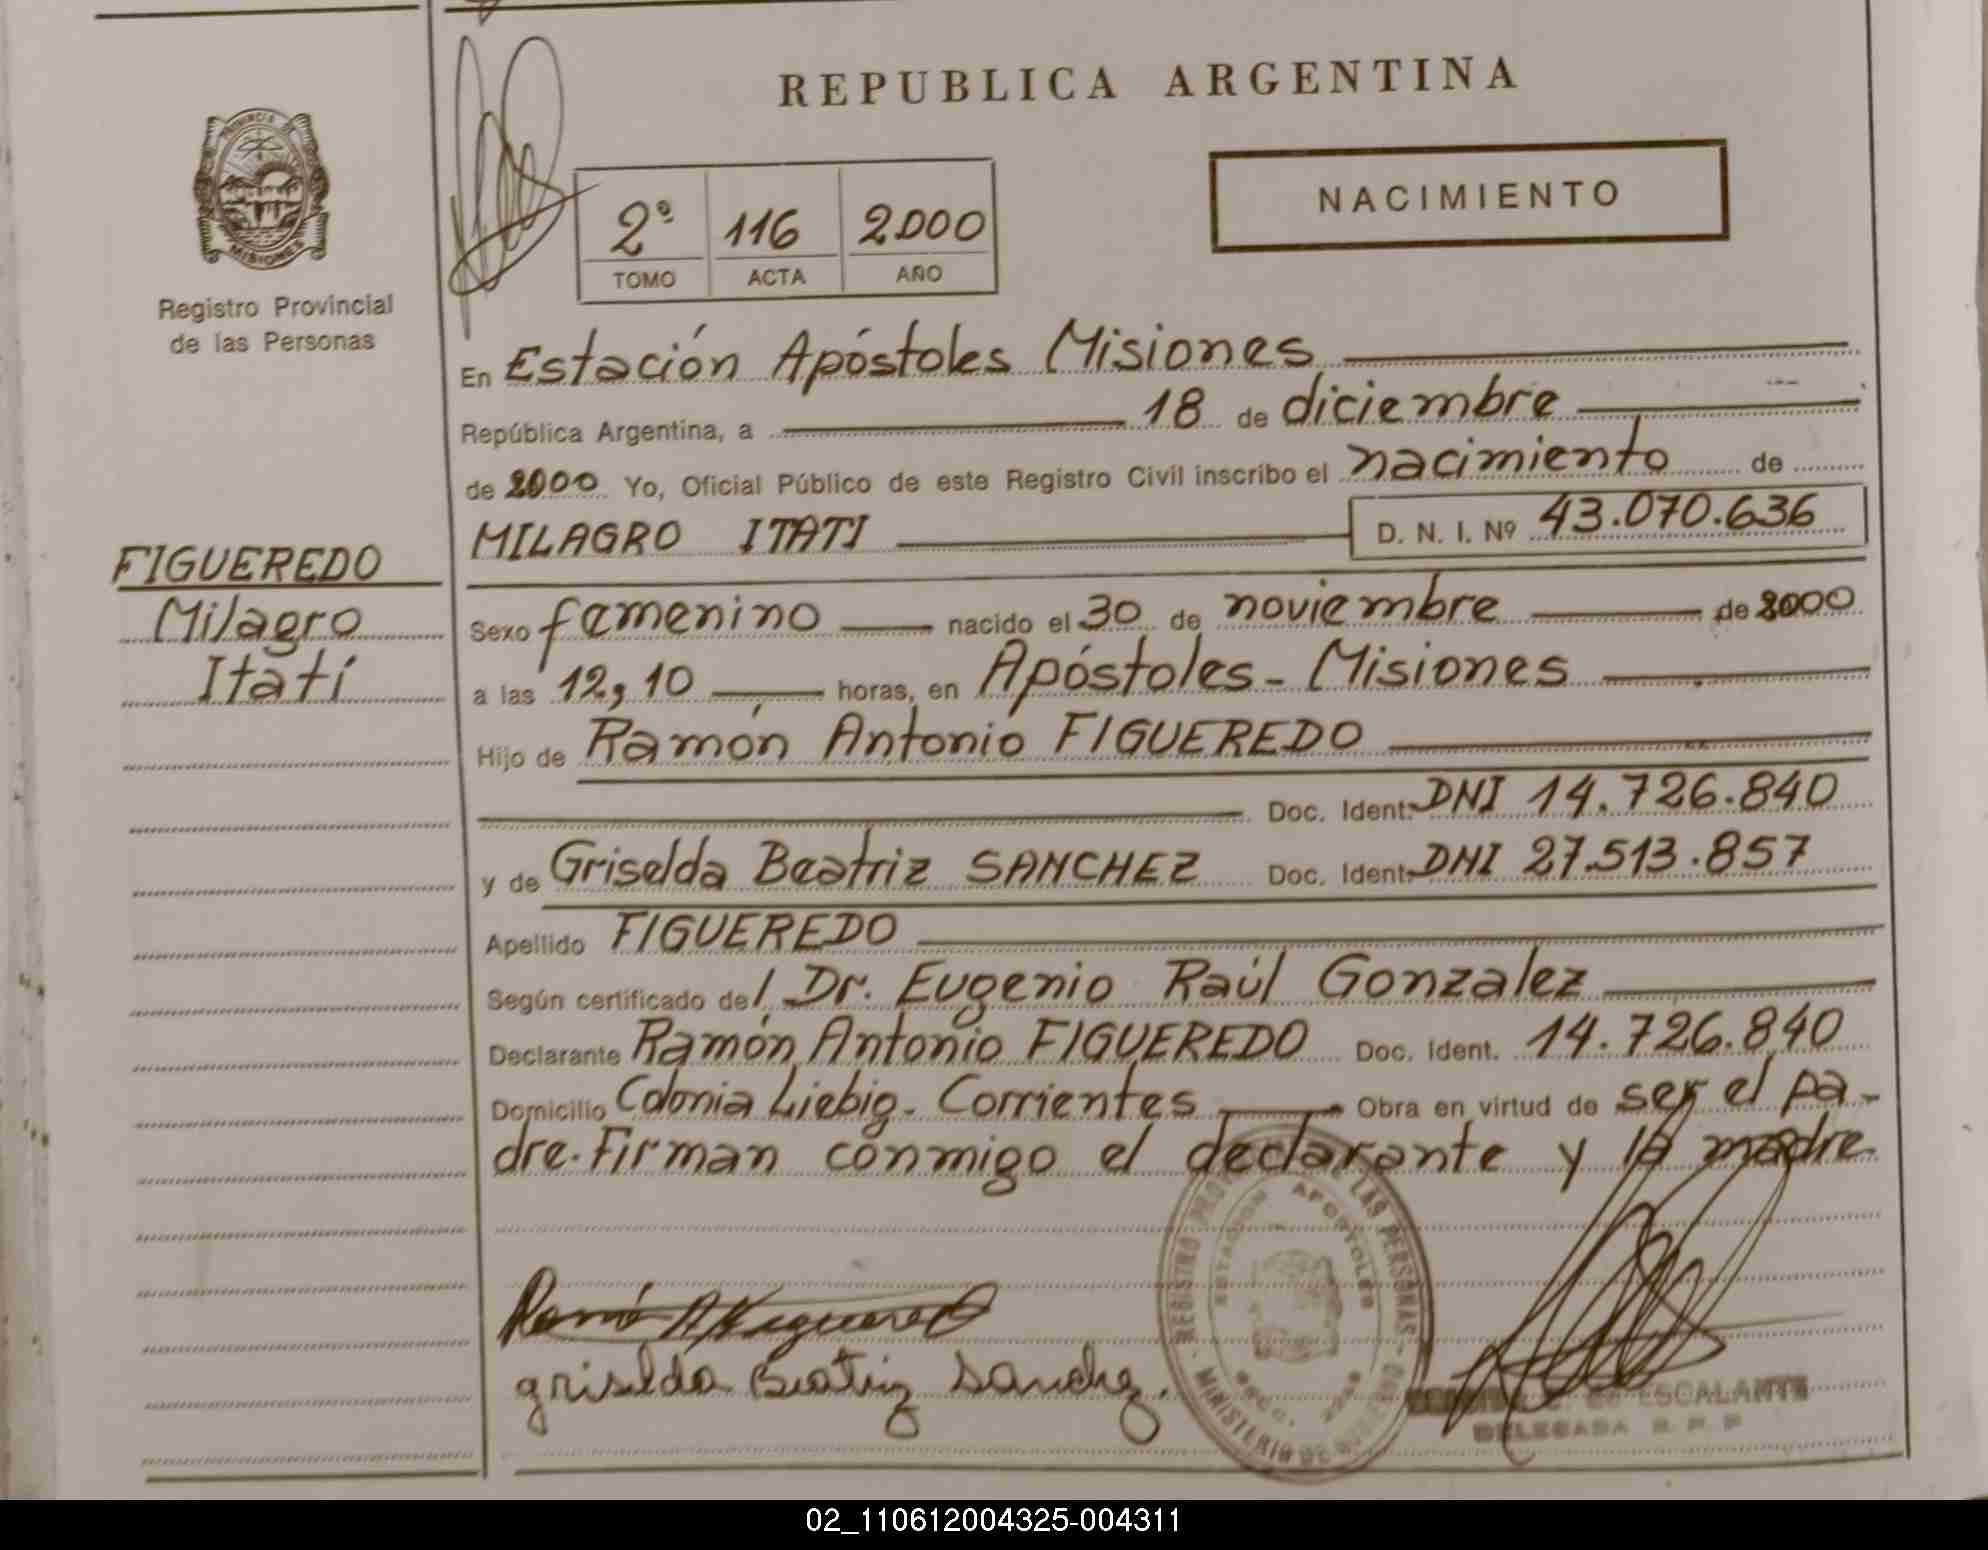 REPUBLICA ARGENTINA
PROVINCIA DE
MISIONES
Registro Provincial
de las Personas
NACIMIENTO
2º 116 2000
TOMO ACTA AÑO
En Estación Apóstoles Misiones
República Argentina, a 18 de diciembre
de 2000 Yo, Oficial Público de este Registro Civil inscribo el nacimiento de
MILAGRO ITATI D. N. I. Nº 43.070.636
FIGUEREDO
Milagro
Itatí
Sexo femenino nacido el 30 de noviembre de 2000
a las 12,10 horas, en Apóstoles - Misiones
Hijo de Ramón Antonio FIGUEREDO
Doc. Ident. DNI 14.726.840
y de Griselda Beatriz SANCHEZ Doc. Ident. DNI 27.513.857
Apellido FIGUEREDO
Según certificado del Dr. Eugenio Raúl Gonzalez
Declarante Ramón Antonio FIGUEREDO Doc. Ident. 14.726.840
Domicilio Colonia Liebig. Corrientes Obra en virtud de ser el pa-
dre. Firman conmigo el declarante y la madre
griselda Beatriz Sanchez.
REGISTRO LAS PERSONAS
ESTACION APOSTOLES
MINISTERIO DE GOBIERNO
ESCALANTE
DELEGADA R. P. P
02_110612004325-004311